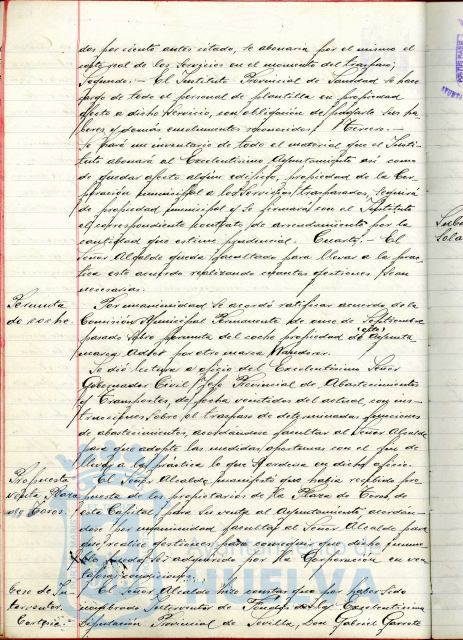 dos por ciento antes citado, se abonaría por el mismo el
coste real de los servicios en el momento del traspaso;
Segundo.- El Instituto Provincial de Sanidad se hace
cargo de todo el personal de plantilla en propiedad
afecto a dicho servicio, con obligación de pagarle sus ha
beres y demás emolumentos Tercero.-
Se hará un inventario de todo el material que el Insti-
tuto abonará al Excelentísimo Ayuntamiento así como
de quedar afecto algún edificio, propiedad de la Cor-
poración municipal a los servicios traspasados, seguirá
de propiedad municipal y se firmará con el Instituto
el correspondiente contrato de arrendamiento por la
cantidad que estime prudencial. Cuarto.- El
señor Alcalde queda facultado para llevar a la prác
tica este acuerdo realizando cuantas gestiones sean
necesarias.
Permuta
de coche.
Por unanimidad se acordó ratificar acuerdo de la
Comisión Municipal Permanente de once de Septiembre
pasado sobre permuta del coche propiedad de este Ayunta
marca por otro marca Wanderer.
Se dió lectura a oficio del Excelentísimo Señor
Gobernador Civil Jefe Provincial de Abastecimientos
y Transportes, de fecha veintidos del actual, con ins-
trucciones sobre el traspaso de determinadas funciones
de abastecimientos, acordándose facultar al Señor Alcalde
para que adopte las medidas oportunas con el fin de
llevar a la práctica lo que se ordena en dicho oficio.
Propuesta
venta Plaza
de Toros.
El Señor Alcalde manifestó que había recibido pro
puesta de los propietarios de la Plaza de Toros de
esta Capital, para su venta al Ayuntamiento, acordán-
dose por unanimidad facultar al Señor Alcalde para
que realice gestiones para conseguir que dicho inmue
ble pueda ser adquirido por la Corporación en ven
tajosas condiciones.
Cese de In-
terventor
El Señor Alcalde hizo constar que por haber sido
nombrado Interventor de Fondos de la Excelentísima
Diputación Provincial de Sevilla, Don Gabriel Garrote
Ayuntamiento de
HUELVA